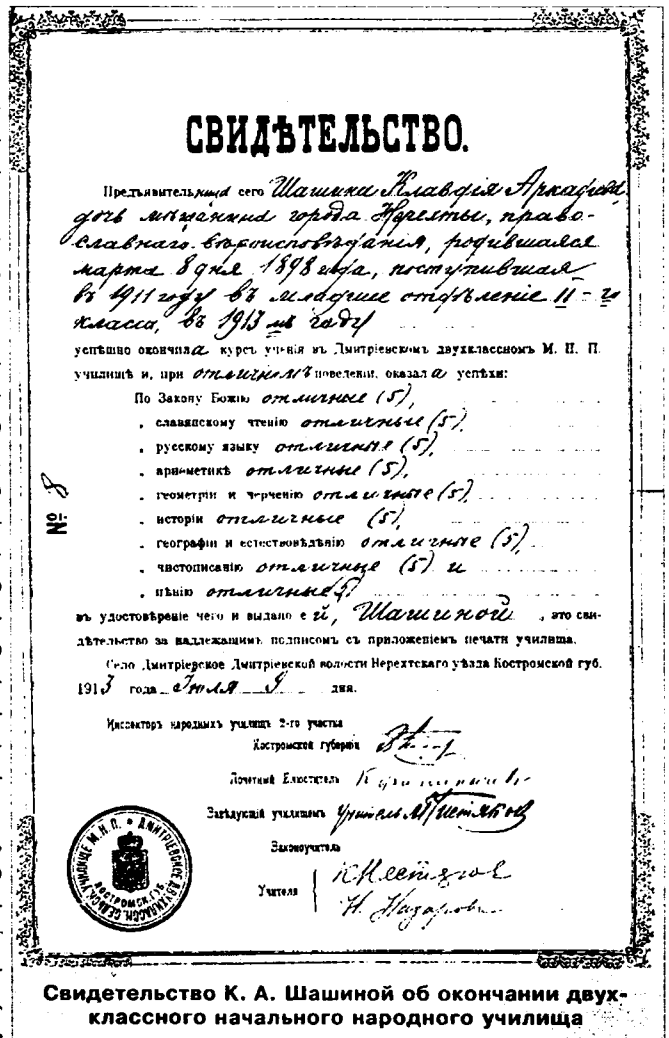 СВИДѢТЕЛЬСТВО.
Предъявительница сего Шашина Клавдія Аркадьева,
дочь мѣщанина города Нерехты, право-
славнаго вѣроисповѣданія, родившаяся
марта 8 дня 1898 года, поступившая
въ 1911 году въ младшее отдѣленіе II-го
класса, въ 1913 мъ году
успѣшно окончила курсъ ученія въ Дмитріевскомъ двухклассномъ М. Н. П.
училищѣ и, при отличномъ поведеніи, оказала успѣхи:
По Закону Божію отличные (5),
„ славянскому чтенію отличные (5),
„ русскому языку отличные (5),
„ ариѳметикѣ отличные (5),
„ геометріи и черченію отличные (5),
„ исторіи отличные (5),
„ географіи и естествовѣдѣнію отличные (5),
„ чистописанію отличные (5) и
„ пѣнію отличные (5)
въ удостовѣреніе чего и выдано ей, Шашиной, это сви-
дѣтельство за надлежащимъ подписомъ съ приложеніемъ печати училища.
Село Дмитріевское Дмитріевской волости Нерехтскаго уѣзда Костромской губ.
1913 года Іюля 9 дня.
№ 8
Инспекторъ народныхъ училищъ 2-го участка
Костромской губерніи
Почетный Блюститель
Завѣдующій училищемъ учитель
Законоучитель
Учителя
Н. Назаровъ
ДМИТРІЕВСКОЕ ДВУХКЛАССН. СЕЛЬСК. УЧИЛИЩЕ М.Н.П.
КОСТРОМСК. ГУБ.
Свидетельство К. А. Шашиной об окончании двух-
классного начального народного училища